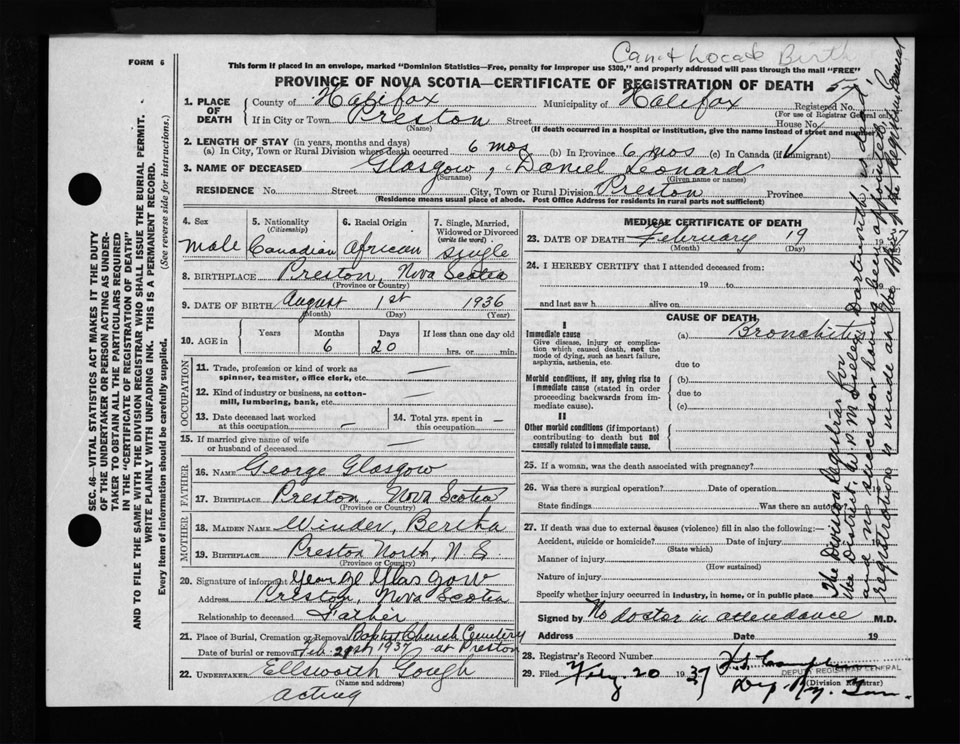 Can't Locate Birth
FORM 6
This form if placed in an envelope, marked "Dominion Statistics—Free, penalty for improper use $300," and properly addressed will pass through the mail "FREE"
PROVINCE OF NOVA SCOTIA—CERTIFICATE OF REGISTRATION OF DEATH
1. PLACE OF DEATH County of Halifax Municipality of Halifax Registered No.
(For use of Registrar General only)
If in City or Town Preston Street House No.
(Name) (If death occurred in a hospital or institution, give the name instead of street and number)
2. LENGTH OF STAY (in years, months and days)
(a) In City, Town or Rural Division where death occurred 6 mos (b) In Province 6 mos (c) In Canada (if immigrant)
3. NAME OF DECEASED Glasgow, Daniel Leonard
(Surname) (Given name or names)
RESIDENCE No. Street City, Town or Rural Division Preston Province
(Residence means usual place of abode. Post Office Address for residents in rural parts not sufficient)
4. Sex 5. Nationality (Citizenship) 6. Racial Origin 7. Single, Married, Widowed or Divorced (write the word)
Male Canadian African Single
8. BIRTHPLACE Preston, Nova Scotia
(Province or Country)
9. DATE OF BIRTH August 1st 1936
(Month) (Day) (Year)
10. AGE in Years Months Days If less than one day old
6 20 hrs. or min.
OCCUPATION
11. Trade, profession or kind of work as
spinner, teamster, office clerk, etc. —
12. Kind of industry or business, as cotton-
mill, lumbering, bank, etc. —
13. Date deceased last worked at this occupation — 14. Total yrs. spent in this occupation —
15. If married give name of wife
or husband of deceased —
FATHER
16. NAME George Glasgow
17. BIRTHPLACE Preston, Nova Scotia
(Province or Country)
MOTHER
18. MAIDEN NAME Winder, Bertha
19. BIRTHPLACE Preston North, N. S.
(Province or Country)
20. Signature of informant George Glasgow
Address Preston, Nova Scotia
Relationship to deceased Father
21. Place of Burial, Cremation or Removal Baptist Church Cemetery
Date of burial or removal Feb. 21st 1937 at Preston
22. UNDERTAKER Ellsworth Gough
(Name and address)
acting
MEDICAL CERTIFICATE OF DEATH
23. DATE OF DEATH February 19 1937
(Month) (Day)
24. I HEREBY CERTIFY that I attended deceased from:
19 to 19
and last saw h alive on 19
CAUSE OF DEATH
I
Immediate cause (a) Bronchitis
Give disease, injury or complication which caused death, not the mode of dying, such as heart failure, asphyxia, asthenia, etc.
due to
Morbid conditions, if any, giving rise to immediate cause (stated in order proceeding backwards from immediate cause).
(b)
due to
(c)
II
Other morbid conditions (if important) contributing to death but not causally related to immediate cause.
25. If a woman, was the death associated with pregnancy?
26. Was there a surgical operation? Date of operation 19
State findings Was there an autopsy?
27. If death was due to external causes (violence) fill in also the following:—
Accident, suicide or homicide? Date of injury
(State which)
Manner of injury
(How sustained)
Nature of injury
Specify whether injury occurred in industry, in home, or in public place
Signed by No doctor in attendance M.D.
Address Date 19
28. Registrar's Record Number
29. Filed Feby. 20 1937
DEPUTY REGISTRAR GENERAL
(Division Registrar)
The Division Registrar for
the District, W. P. M. Dartmouth, is dead
and no successor having been appointed,
registration is made at the office of the Registrar General
SEC. 46—VITAL STATISTICS ACT MAKES IT THE DUTY
OF THE UNDERTAKER OR PERSON ACTING AS UNDER-
TAKER TO OBTAIN ALL THE PARTICULARS REQUIRED
IN THE "CERTIFICATE OF REGISTRATION OF DEATH"
AND TO FILE THE SAME WITH THE DIVISION REGISTRAR WHO SHALL ISSUE THE BURIAL PERMIT.
WRITE PLAINLY WITH UNFADING INK. THIS IS A PERMANENT RECORD.
Every item of information should be carefully supplied. (See reverse side for instructions.)